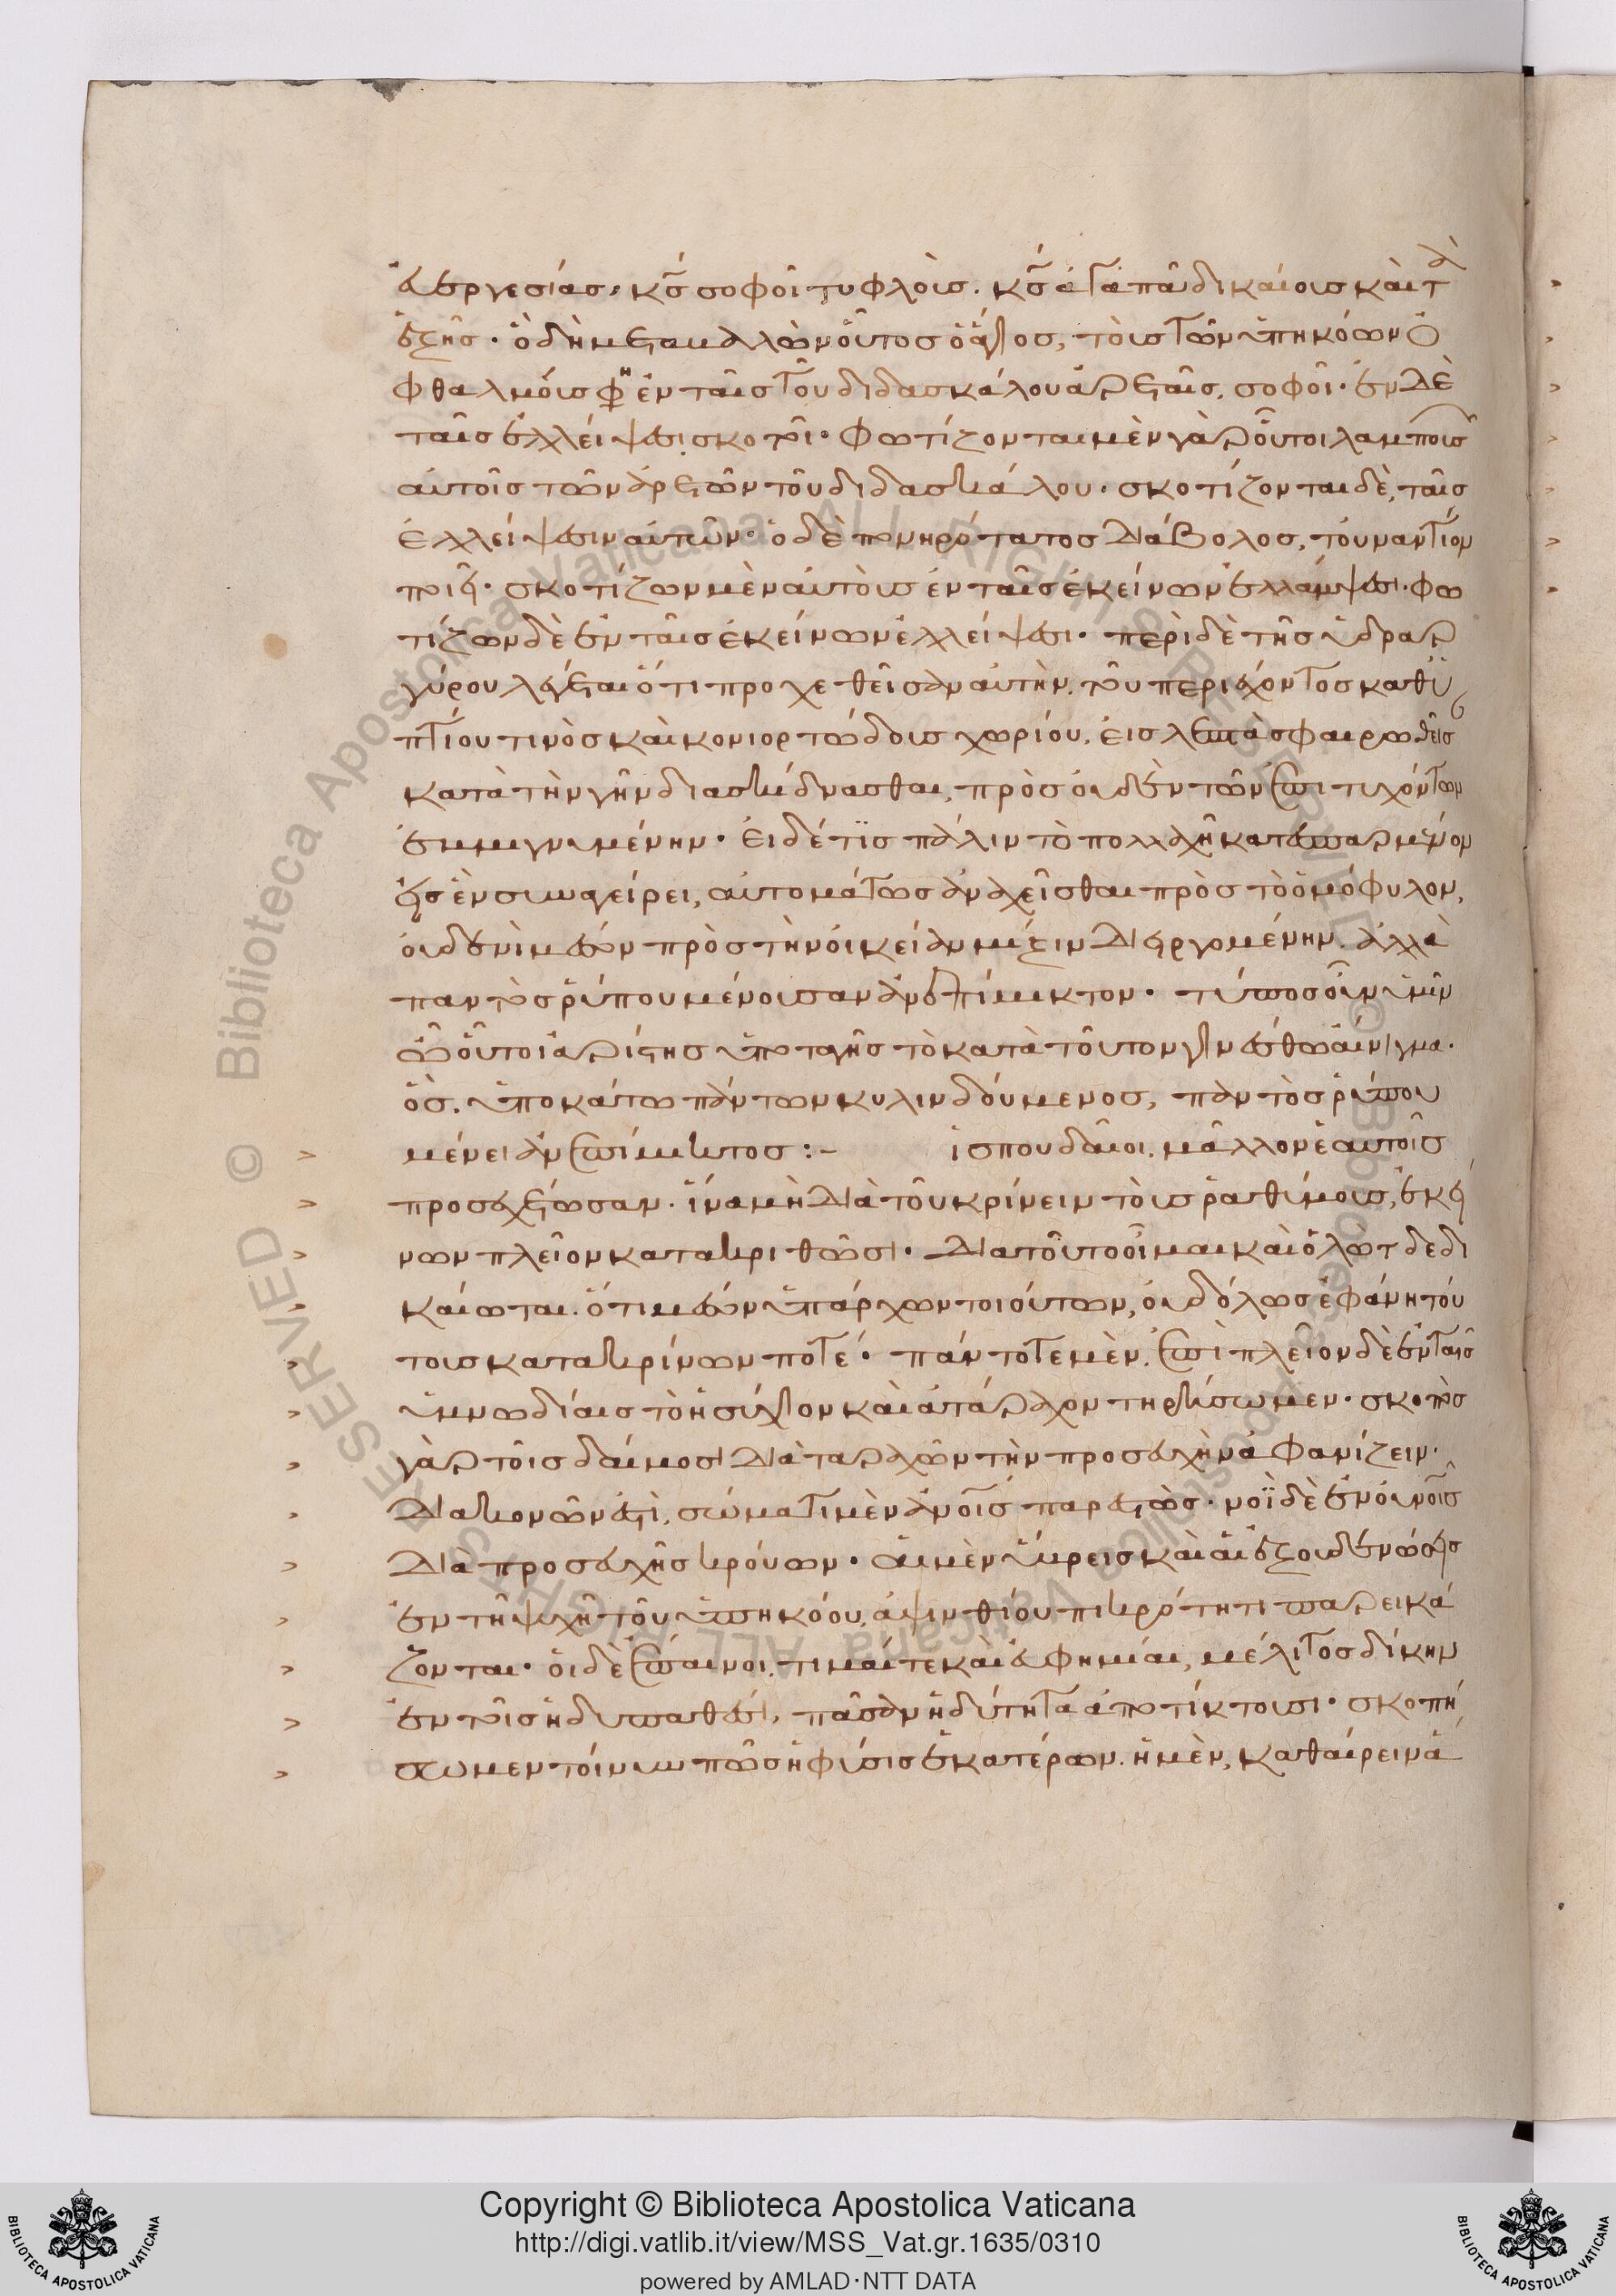 εὐεργεσίας, κς σοφοῖ τυφλοὺς. κς ἀγαπᾶ δικαίους καὶ τ
ἑξῆς. ὃ δὴ μεταμαλὼν οὗτος ὁ ἅγιος, τοὺς τῶν ὑπηκόων ὀ
φθαλμούς φη ἐν ταῖς τοῦ διδασκάλου ἀρεταῖς, σοφοῖ. ἐν δὲ
ταῖς ἐλλείψεσι σκοτοῖ. φωτίζονται μὲν γὰρ οὗτοι
αὐτοῖς τῶν ἀρετῶν τοῦ διδασκάλου. σκοτίζονται δὲ, ταῖς
ἐλλείψεσιν αὐτῶν. ὁ δὲ πονηρότατος διάβολος, τοὐναντίον
ποιεῖ. σκοτίζων μὲν αὐτοὺς ἐν ταῖς ἐκείνων ἐλλάμψεσι. φω
τίζων δὲ ἐν ταῖς ἐκείνων ἐλλείψεσι. περὶ δὲ τῆς ὑδραρ
γύρου λέγεται ὅτι προχεθεῖσαν αὐτὴν. τοῦ περιέχοντος καθϋ
πτίου τινὸς καὶ κονιορτώδους χωρίου, εἰς λεπτὰ σφαιρωθεῖς
κατὰ τὴν γῆν διασκίδνασθαι, πρὸς οὐδὲν τῶν ἐπιτυχόντων
ἐμμιγνυμένην. εἰ δέ τϊς πάλιν τὸ πολλαχῆ κατεσπαρμένον
εἰς ἓν συναγείρει, αὐτομάτως ἀναχεῖσθαι πρὸς τὸ ὁμόφυλον,
οὐδενὶ μέσων πρὸς τὴν οἰκείαν μίξιν διειργομένην. ἀλλὰ
παντὸς ῥύπου μένουσαν ἀνεπίμικτον. τύπος οὖν ὑμῖν
ὦ οὗτοι ἀρίστης ὑποταγῆς τὸ κατὰ τοῦτον γινέσθω αἴνιγμα.
ὃς. ὑποκάτω πάντων κυλινδούμενος, παντὸς ῥύπου
μένει ἀνεπίμικτος :- ἱ σπουδαῖοι. μᾶλλον ἑαυτοῖς
προσεχέτωσαν. ἵνα μὴ διὰ τοῦ κρίνειν τοὺς ῥαθύμους, ἐκεί
νων πλεῖον κατακριθῶσι. διὰ τοῦτο οἶμαι καὶ ὁ λὼτ δεδι
καίωται. ὅτι μέσων ὑπάρχων τοιούτων, οὐδόλως ἐφάνη τού
τους κατακρίνων ποτέ. πάντοτε μὲν. ἐπὶ πλεῖον δὲ ἐν ταῖς
ὑμνωδίαις τὸ ἡσύχιον καὶ ἀτάραχον τηρήσωμεν. σκοπὸς
γὰρ τοῖς δαίμοσι διὰ ταραχῶν τὴν προσευχὴν ἀφανίζειν.
διακονῶν ἐστὶ, σώματι μὲν ἀνοῖς παρεστὼς. νοῒ δὲ ἐν οὐνοῖς
διὰ προσευχῆς κρούων. αἱ μὲν ὕβρεις καὶ αἱ ἐξουδενώσεις
ἐν τῆ ψυχῆ τοῦ ὑπηκόου, ἀψινθίου πικρότητι παρεικά
ζονται. οἱ δὲ ἔπαινοι. τιμαί τε καὶ εὐφημίαι, μέλιτος δίκην
ἐν τοῖς ἡδυπαθέσι, πᾶσαν ἡδύτητα ἀποτίκτουσι. σκοπή
σωμεν τοίνυν πῶς ἡ φύσις ἑκατέρων. ἡ μὲν, καθαίρειν ἅ
Copyright © Biblioteca Apostolica Vaticana
http://digi.vatlib.it/view/MSS_Vat.gr.1635/0310
powered by AMLAD·NTT DATA